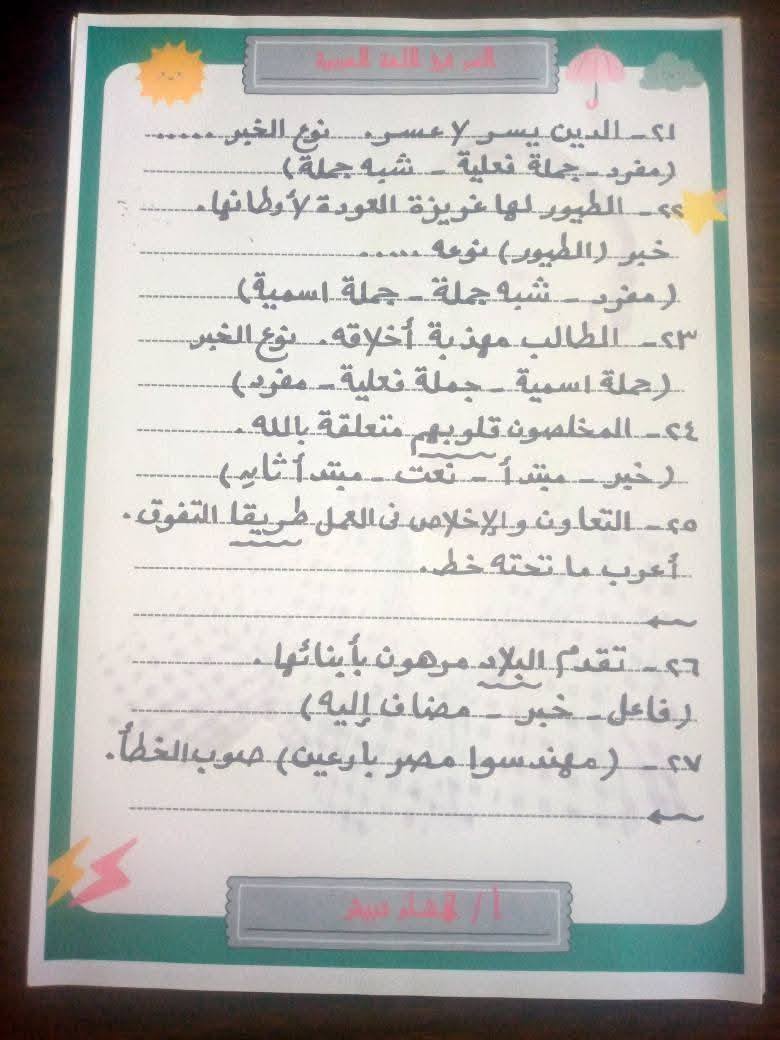 في اللغة العربية
٢١- الدين يسر لا عسر. نوع الخبر .....
(مفرد - جملة فعلية - شبه جملة)
٢٢- الطيور لها غريزة العودة لأوطانها.
خبر (الطيور) نوعه .....
(مفرد - شبه جملة - جملة اسمية)
٢٣- الطالب مهذبة أخلاقه. نوع الخبر
(جملة اسمية - جملة فعلية - مفرد)
٢٤- المخلصون قلوبهم متعلقة بالله.
(خبر - مبتدأ - نعت - مبتدأ ثان)
٢٥- التعاون والإخلاص فى العمل طريقا التفوق.
أعرب ما تحته خط.
٢٦- تقدم البلاد مرهون بأبنائها.
(فاعل - خبر - مضاف إليه)
٢٧- (مهندسوا مصر بارعين) صوب الخطأ.
أ /